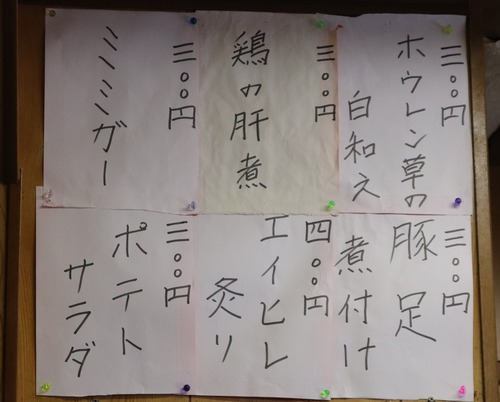 三〇〇円
ホウレン草の
白和え
三〇〇円
鶏の肝煮
三〇〇円
ミミンガー
三〇〇円
豚足
煮付け
四〇〇円
エイヒレ
炙り
三〇〇円
ポテト
サラダ